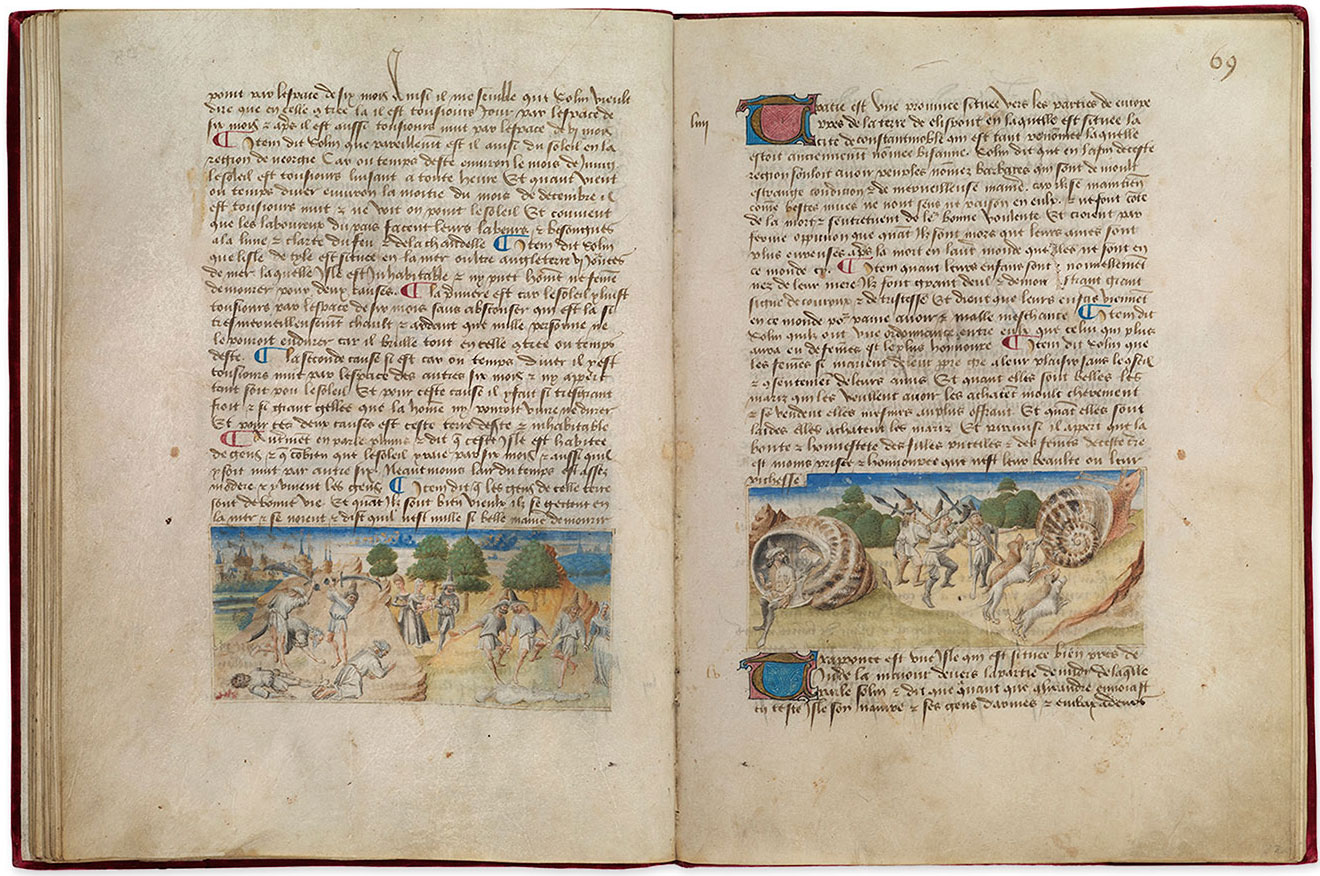 point par lespace de six mois Ainsi il me semble que Solin vieult
dire que en celle 9tree la il est tousiours Jour par lespace de
six mois & aps il est aussi tousiours nuit par lespace de vj mois
Item dit Solin que pareillement est il ainsi du soleil en la
region de Car ou temps deste environ le mois de
le soleil est tousiours luisant a toute heure Et quant vient
ou temps diver environ la moitie du mois de decembre il
est tousiours nuit & ne voit on point le soleil Et convient
que les laboureux du pais facent leurs labeurs & besongnes
a la lune & clarte du feu & de la chandelle Item dit Solin
que lisle de tyle est situee en la mer oultre angleterre vj Jornees
de mer laquelle Isle est Inhabitable & ny puet home ne feme
demourer pour deux causes. La est car le soleil y luist
tousiours par lespace de six mois sans absconser qui est la si
tresmerveilleusemt chault & ardant que nulle personne ne
le pouroit endurer car il brusle tout en celle 9tree ou temps
deste. La seconde cause si est car ou temps diver il y est
tousiours nuit par lespace des autres six mois & ny apert
tant soit pou le soleil Et pour ceste cause il y fait si tresgrant
froit & si grant gellee que la home ny pouroit vivre ne durer
Et pour ces deux causes est ceste terre deserte & inhabitable
Autmet en parle plinius & dit q ceste Isle est habitee
de gens & q cobien que le soleil y luise par six mois & aussi quil
y soit nuit par autre six. Neantmoins lair du temps est assez
modere & y vivent les gens Item dit q les gens de celle terre
sont de bonne vie. Et quat Ilz sont bien vieulx ilz se gettent en
la mer & se noient & dist quil nest nulle si belle maniere de mourir
69
liiii
Tracie est une province situee vers les parties de europe
pres de la terre de elispont en laquelle est situee la
cite de constantinoble qui est tant renomee laquelle
estoit anciennement nomee bisance. Solin dit que en la fin de ceste
region souloit avoir peuples nomez barbares qui sont de moult
estrange condicion & de merveilleuse maniere. car ilz se maintienent
come bestes mues ne nont sens ne raison en eulx. & ne font cote
de la mort & sentretuent de leur bonne voulente Et croient par
ferme oppinion que quat Ilz sont mors que leurs ames sont
plus eureuses aps la mort en lautre monde que Elles ne sont en
ce monde cy. Item quant leurs enfans sont nouvellement
nez de leur mere Ilz font grant deul & demonstrant grant
signe de couroux & de tristesse Et dient que leurs enfans vienent
en ce monde po paine avoir & malle meschante Item dit
Solin quilz ont une ordonnance entre eulx que celui qui plus
aura eu de femes est le plus honnoure Item dit Solin que
les femes se marient a leur plaisir sans le 9seil
& 9sentemet de leurs amis Et quant elles sont belles les
mariz qui les veullent avoir les achatet moult chierement
& se vendent elles mesmes au plus offrant Et quat elles sont
laides elles achatent les mariz Et par ainsi il apert que la
bonte & honnestete des filles pucelles & des femes de ceste tre
est moins prisee & honnouree que nest leur beaulte ou leur
richesse
Traponce est une Isle qui est situee bien pres de
Inde la maiour devers la partie de midy de laqlle
parle solin & dit que quant que alixandre envoiast
en ceste Isle son navire & ses gens darmes & embaxadeurs